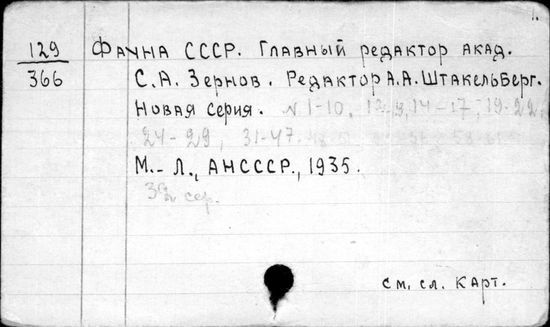 129
366
Фауна СССР. Главный редактор акад.
С.А. Зернов. Редактор А.А. Штакельберг.
Новая серия. N 1-10, 12-17, 19-22,
24-29, 31-47.
М.-Л., АНСССР., 1935.
сер.
см. сл. карт.